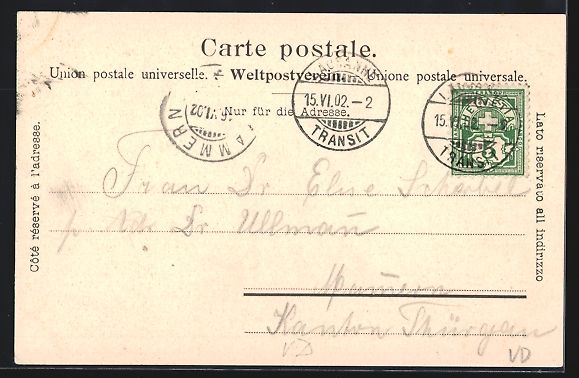 Carte postale.
Union postale universelle. – Weltpostverein. – Unione postale universale.
Nur für die Adresse.
Côté réservé à l'adresse.
Lato riservato all indirizzo
AMMERN
VI.02
LAUSANNE
15.VI.02.–2
TRANSIT
15.VI.
TRANSIT
HELVETIA
5
Frau Dr Elise
Dr Ullmann
Mammern
Kanton Thürgau
VD
VD